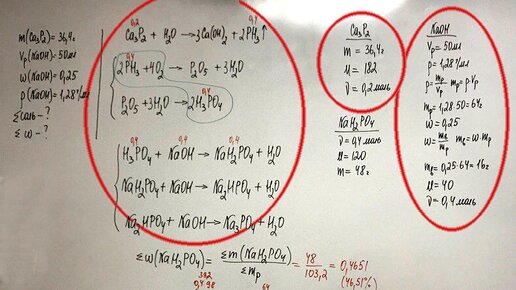 m(Ca₃P₂) = 36,4г
Vр(NaOH) = 50мл
ω(NaOH) = 0,25
ρ(NaOH) = 1,28г/мл
Σсоль - ?
Σω - ?
0,2 0,4
Ca₃P₂ + H₂O → 3Ca(OH)₂ + 2PH₃↑
0,4
2PH₃ + 4O₂ → P₂O₅ + 3H₂O
0,4
P₂O₅ + 3H₂O → 2H₃PO₄
0,4 0,4 0,4
H₃PO₄ + NaOH → NaH₂PO₄ + H₂O
NaH₂PO₄ + NaOH → Na₂HPO₄ + H₂O
Na₂HPO₄ + NaOH → Na₃PO₄ + H₂O
Σω(NaH₂PO₄) = Σm(NaH₂PO₄) / Σmр = 48 / 103,2 = 0,4651
(46,51%)
39,2
0,4·98
64
Ca₃P₂
m = 36,4г
M = 182
ν = 0,2моль
NaH₂PO₄
ν = 0,4моль
M = 120
m = 48г
NaOH
Vр = 50мл
ρ = 1,28г/мл
ρ = mр/Vр mр = ρ·Vр
mр = 1,28·50 = 64г
ω = 0,25
ω = mв/mр mв = ω·mр
mв = 0,25·64 = 16г
M = 40
ν = 0,4моль